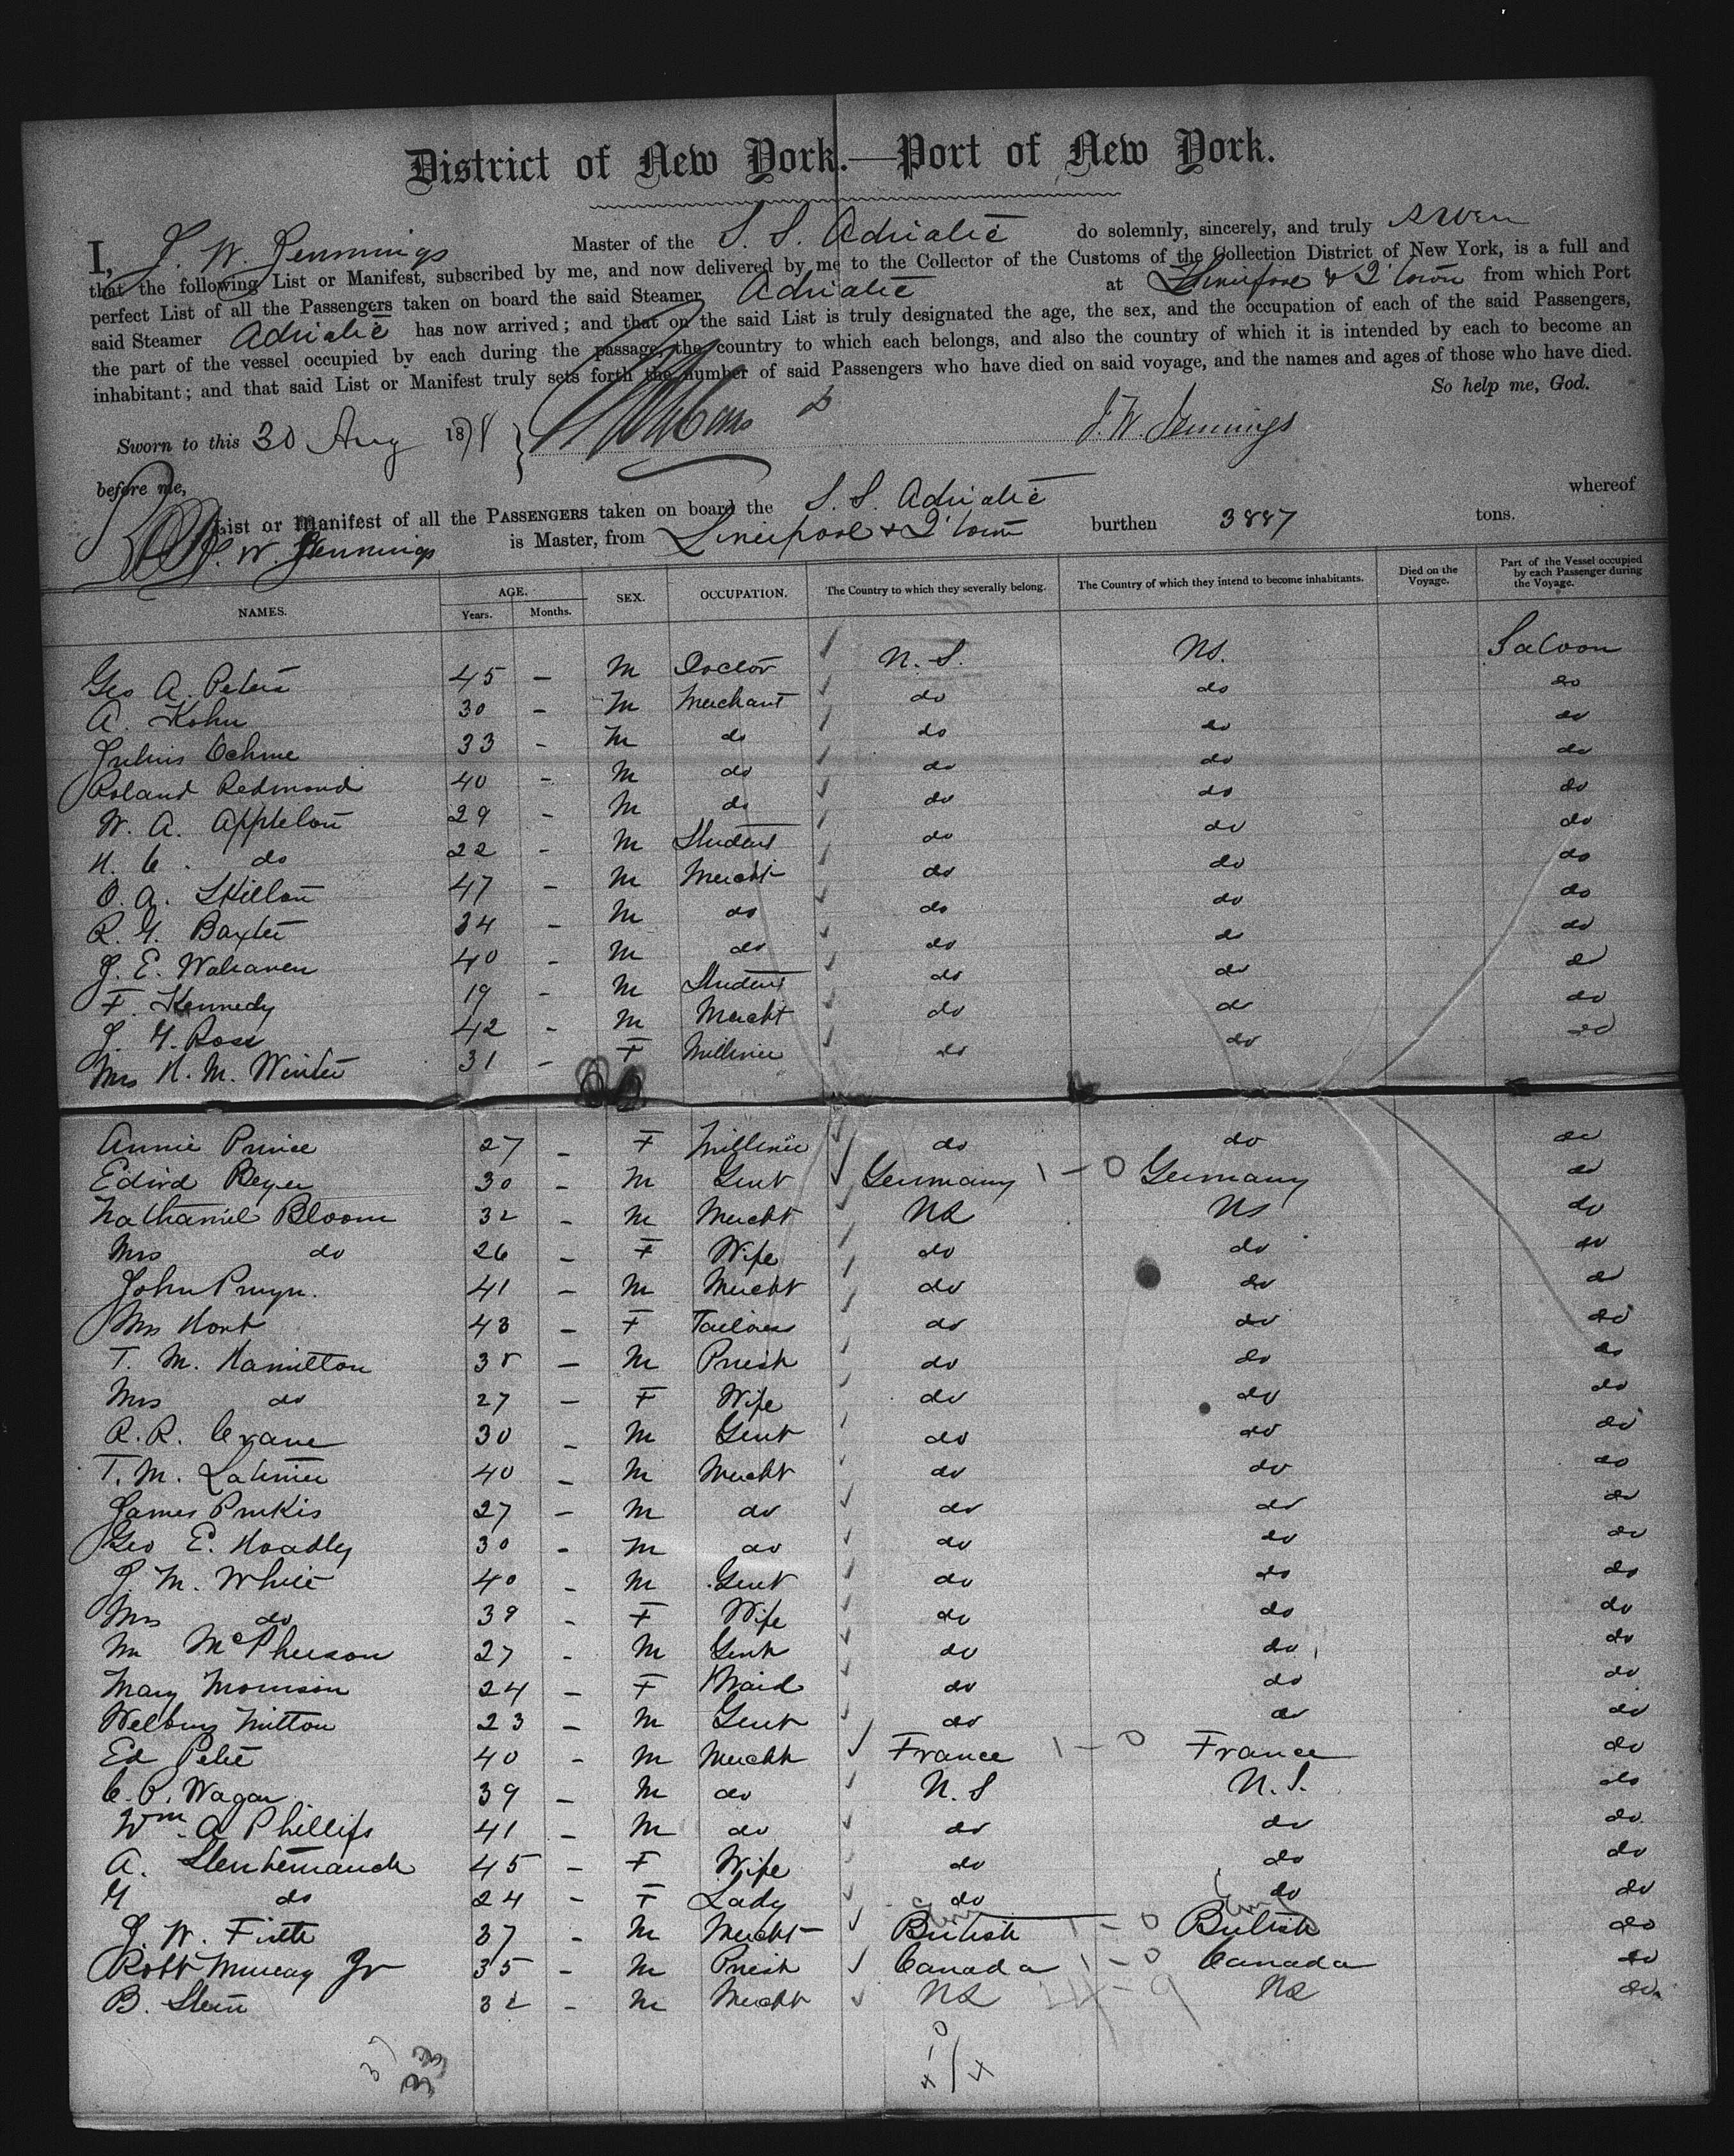 District of New York.—Port of New York.
I, J. W. Jennings Master of the S. S. Adriatic do solemnly, sincerely, and truly swear
that the following List or Manifest, subscribed by me, and now delivered by me to the Collector of the Customs of the Collection District of New York, is a full and
perfect List of all the Passengers taken on board the said Steamer Adriatic at Liverpool & Q'town from which Port
said Steamer Adriatic has now arrived; and that on the said List is truly designated the age, the sex, and the occupation of each of the said Passengers,
the part of the vessel occupied by each during the passage, the country to which each belongs, and also the country of which it is intended by each to become an
inhabitant; and that said List or Manifest truly sets forth the number of said Passengers who have died on said voyage, and the names and ages of those who have died.
So help me, God.
Sworn to this 30 Aug 1878 J. W. Jennings
before me,
List or Manifest of all the PASSENGERS taken on board the S. S. Adriatic whereof
J. W. Jennings is Master, from Liverpool & Q'town burthen 3887 tons.
NAMES. AGE. Years. Months. SEX. OCCUPATION. The Country to which they severally belong. The Country of which they intend to become inhabitants. Died on the Voyage. Part of the Vessel occupied by each Passenger during the Voyage.
Geo A. Peters 45 - M Doctor U. S. U.S. Saloon
A. Kohn 30 - M Merchant do do do
Julius Oehme 33 - M do do do do
Roland Redmond 40 - M do do do do
W. A. Appleton 29 - M do do do do
H. C. do 22 - M Student do do do
O. A. Skillon 47 - M Mercht do do do
R. G. Baxter 34 - M do do do do
J. E. Walraven 40 - M do do do do
F. Kennedy 19 - M Student do do do
J. G. Ross 42 - M Mercht do do do
Mrs H. M. Winter 31 - F Milliner do do do
Annie Prince 27 - F Milliner do do do
Edwd Beyer 30 - M Gent Germany 1 - 0 Germany do
Nathaniel Bloom 32 - M Mercht US US do
Mrs do 26 - F Wife do do do
John Pruyn. 41 - M Mercht do do do
Mrs Hort 43 - F Tailoress do do do
T. M. Hamilton 38 - M Priest do do do
Mrs do 27 - F Wife do do do
R. R. Crane 30 - M Gent do do do
T. M. Latimer 40 - M Mercht do do do
James Purkis 27 - M do do do do
Geo E. Hoadley 30 - M do do do do
J. M. White 40 - M Gent do do do
Mrs do 39 - F Wife do do do
Mr McPherson 27 - M Gent do do do
Mary Morrison 24 - F Maid do do do
Welbury Mitton 23 - M Gent do do do
Ed Petre 40 - M Mercht France 1 - 0 France do
C. P. Wagar 39 - M do U. S U. S. do
Wm. A Phillips 41 - M do do do do
A. 45 - F Wife do do do
G do 24 - F Lady do do do
J. W. Firth 37 - M Mercht British 1 - 0 British do
Robt Murray Jr 35 - M Priest Canada 1 - 0 Canada do
B. Stern 32 - M Mercht US 14 - 9 US do
37 33